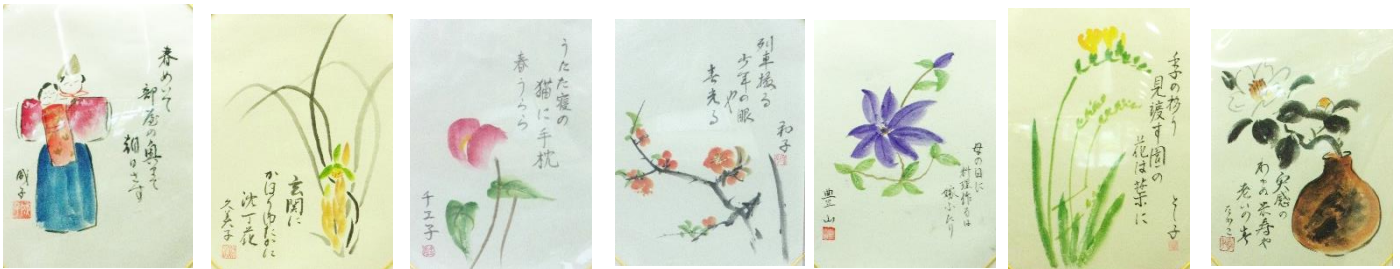 春めいて
部屋の奥まで
朝日さす
成子
玄関に
かほりゆたかに
沈丁花
久美子
うたた寝の
猫に手枕
春うらら
チエ子
列車撮る
少年の眼や
春光る
和子
母の日に
料理作るは
嫁ふたり
豊山
見渡す園の
花は葉に
とし子
実感の
わが米寿や
老いの春